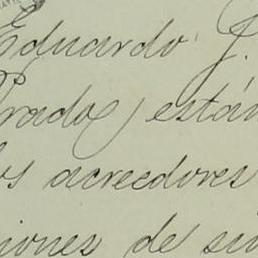 Eduardo J.
Prado, están
los acreedores
iones de su